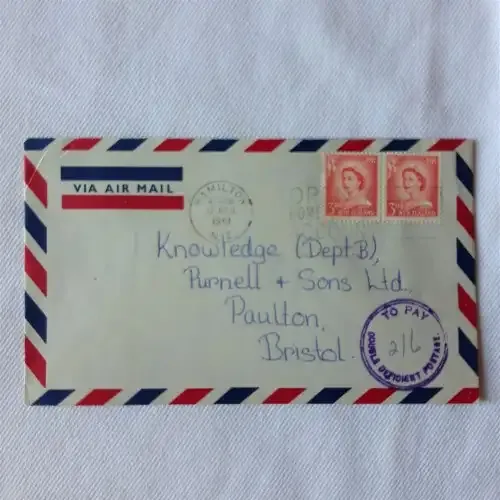 VIA AIR MAIL
HAMILTON
N.Z.
3D
NEW ZEALAND
Knowledge (Dept B),
Purnell & Sons Ltd.,
Paulton,
Bristol.
TO PAY
2/6
DOUBLE DEFICIENT POSTAGE.